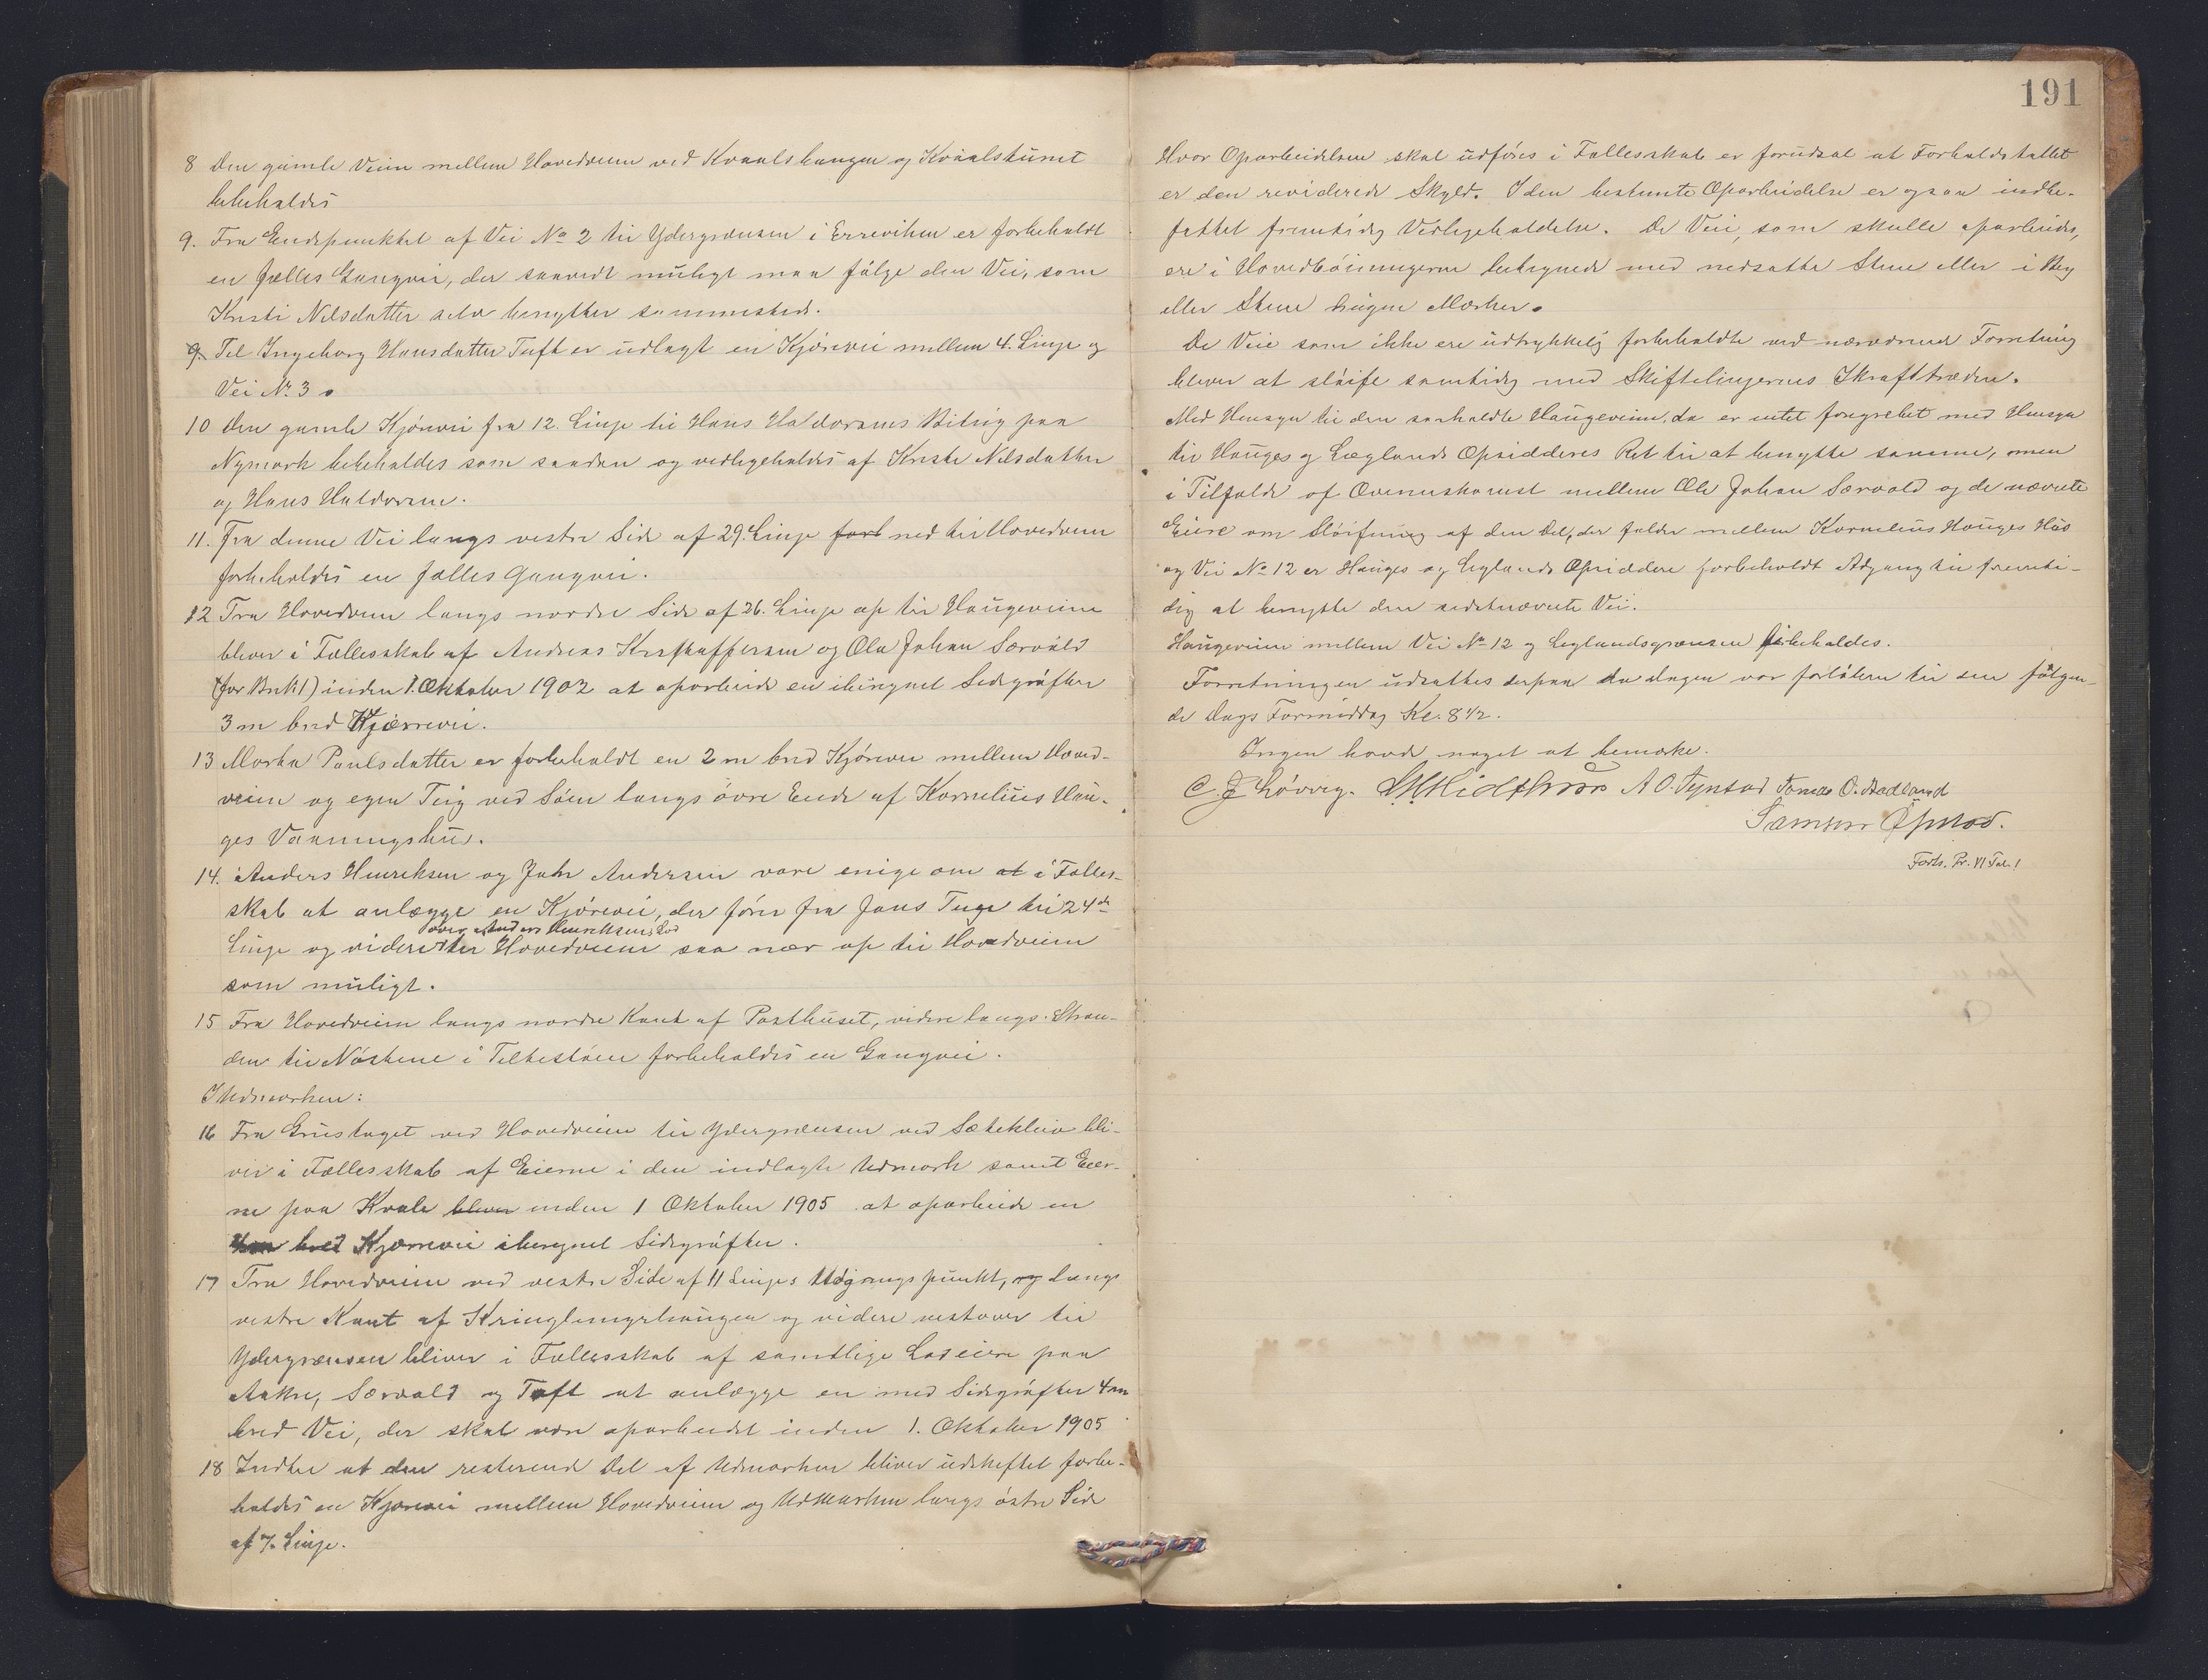 8 Den gamle Veien mellem Hovedveien ved Kvaalshaugen og Kvaalstunet
bibeholdes
9. Fra Endepunktet af Vei No 2 til Ydergrænsen i Erreviken er forbeholdt
en fælles Gangvei, der saavidt muligt maa følge den Vei, som
Kristi Nilsdatter selv benytter sammesteds.
9. Til Ingeborg Hansdatter Tuft er udlagt en Kjørevei mellem 4. Linje og
Vei Nr. 3.
10 Den gamle Kjørevei fra 12. Linje til Hans Haldorsens Biteig paa
Nymark bibeholdes som saadan og vedligeholdes af Kristi Nilsdatter
og Hans Haldorsen.
11. Fra denne Vei langs vestre Side af 29. Linje fort ned til Hovedveien
forbeholdes en fælles Gangvei.
12 Fra Hovedveien langs nordre Side af 26. Linje op til Haugeveien
bliver i Fællesskab af Andreas Kristoffersen og Ole Johan Særvold
(for Bruk 1) inden 1. Oktober 1902 at oparbeide en iberegnet Sidegrøfter
3 m bred Kjørevei.
13 Marta Paulsdatter er forbeholdt en 2 m bred Kjørevei mellem Hoved-
veien og egen Teig ved Søen langs øvre Ende af Kornelius Hau-
ges Vaaningshus.
14. Anders Henriksen og Jahn Andersen vare enige om at i Fælles-
skab at anlægge en Kjørevei, der fører fra Jans Teig til 24de
over Anders Henriksens Lod
Linje og videre til Hovedveien saa nær op til Hovedveien
som muligt.
15 Fra Hovedveien langs nordre Kant af Posthuset, videre langs Stran-
den til Nøstene i Teltestøen forbeholdes en Gangvei.
I Udmarken:
16 Fra Grustaget ved Hovedveien til Ydergrænsen ved Sætekleiv bli-
ver i Fællesskab af Eierne i den indlagte Udmark samt Eier-
ne paa Kvale bliver inden 1 Oktober 1905 at oparbeide en
4 m bred Kjørevei iberegnet Sidegrøfter.
17 Fra Hovedveien ved vestre Side af 11 Linjes Udgangspunkt, og langs
vestre Kant af Kringlemyrhaugen og videre vestover til
Ydergrænsen bliver i Fællesskab af samtlige Lodeiere paa
Aakre, Særvold og Tuft at anlægge en med Sidegrøfter 4 m
bred Vei, der skal være oparbeidet inden 1. Oktober 1905
18 Indtil at den resterende Del af Udmarken bliver udskiftet forbe-
holdes en Kjørevei mellem Hovedveien og Udmarken langs østre Side
af 7. Linje.
191
Hvor Oparbeidelsen skal udføres i Fællesskab er forudsat at Forholdstallet
er den reviderede Skyld. I den bestemte Oparbeidelse er ogsaa indbe-
fattet fremtidig Vedligeholdelse. De Veie, som skulle oparbeides,
ere i Hovedbøiningerne betegnede med nedsatte Stene eller i Berg
eller Stene hugne Mærker.
De Veie som ikke ere udtrykkelig forbeholdte ved nærværende Forretning
bliver at sløife samtidig med Skiftelinjernes Ikrafttræden.
Med Hensyn til den saakaldte Haugeveien, da er intet foregrebet med Hensyn
til Hauges og Læglands Opsidderes Ret til at benytte samme, men
i Tilfælde af Overenskomst mellem Ole Johan Særvold og de nævnte
Eiere om Sløifning af den Del, der falder mellem Kornelius Hauges Hus
og Vei No 12 er Hauges og Leglands Opsiddere forbeholdt Adgang til fremti-
dig at benytte den sidstnævnte Vei.
Haugeveien mellem Vei No 12 og Leglandsgrænsen bibeholdes.
Forretningen udsattes derpaa da Dagen var forløben til den følgen-
de Dags Formiddag Kl. 8 1/2.
Ingen havde noget at bemærke.
C J Løvvig. A O. Tynstad Tomas O. Aadland
Samson
Forts. Pr. VI Fol. 1